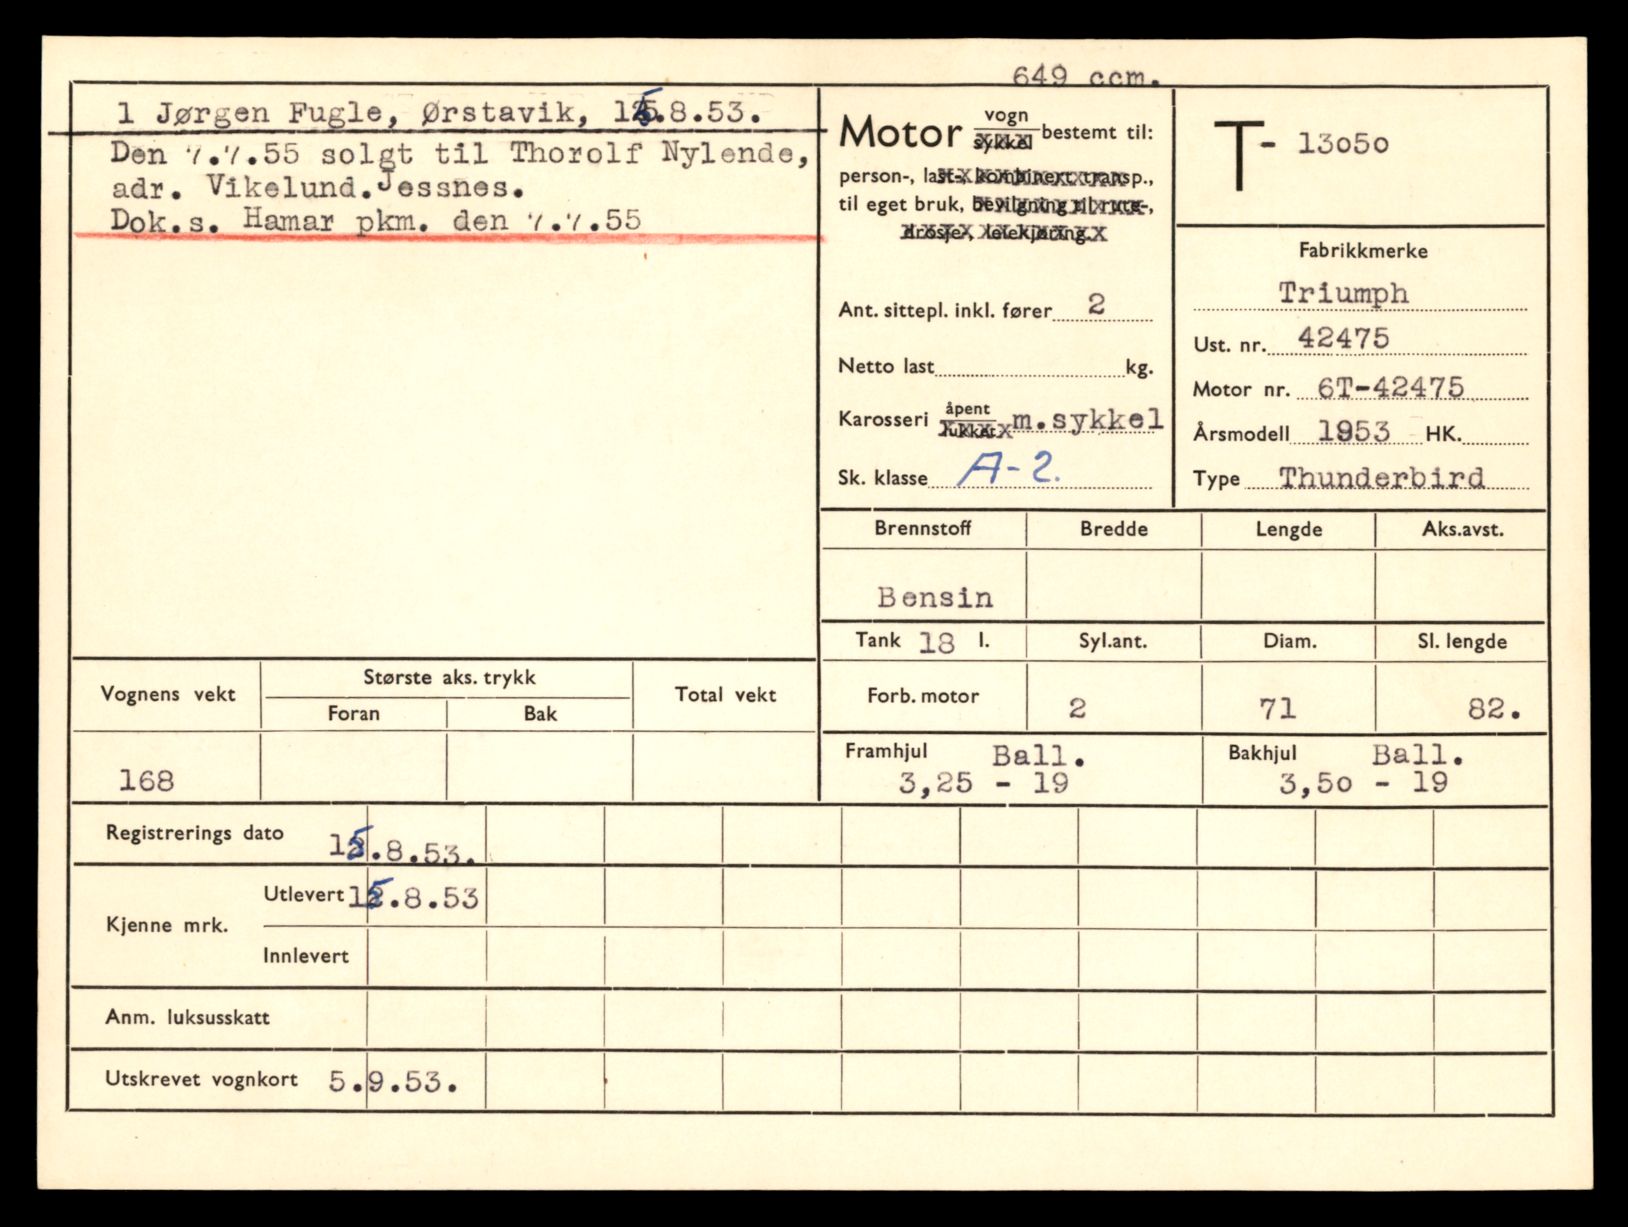 649 ccm.
1 Jørgen Fugle, Ørstavik, 15.8.53.
Den 7.7.55 solgt til Thorolf Nylende,
adr. Vikelund.Jessnes.
Dok.s. Hamar pkm. den 7.7.55
Motor vogn sykkel bestemt til:
person-, last-, kombinert transp.,
til eget bruk, bevilgning til rute-,
drosje-, leiekjøring.
Ant. sittepl. inkl. fører 2
Netto last kg.
Karosseri åpent lukket m.sykkel
Sk. klasse A-2.
T- 13050
Fabrikkmerke
Triumph
Ust. nr. 42475
Motor nr. 6T-42475
Årsmodell 1953 HK.
Type Thunderbird
Brennstoff Bredde Lengde Aks.avst.
Bensin
Tank 18 l. Syl.ant. Diam. Sl. lengde
Forb. motor 2 71 82.
Framhjul Ball. Bakhjul Ball.
3,25 - 19 3,50 - 19
Vognens vekt Største aks. trykk Total vekt
Foran Bak
168
Registrerings dato 15.8.53.
Kjenne mrk. Utlevert 15.8.53
Innlevert
Anm. luksusskatt
Utskrevet vognkort 5.9.53.